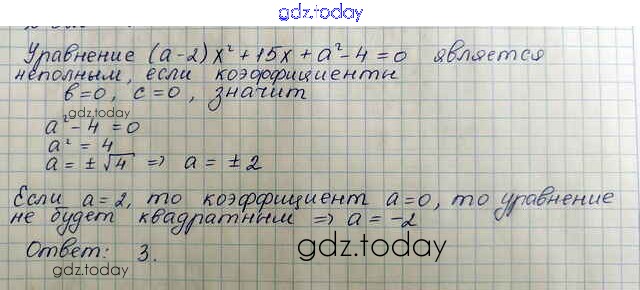 gdz.today
Уравнение (а-2)x² + 15x + а² - 4 = 0 является
неполным, если коэффициенты
в=0, с=0, значит
gdz.today
а² - 4 = 0
а² = 4
а = ± √4 => а = ± 2
Если а=2, то коэффициент а=0, то уравнение
не будет квадратным => а = -2
Ответ: 3.
gdz.today
gdz.today